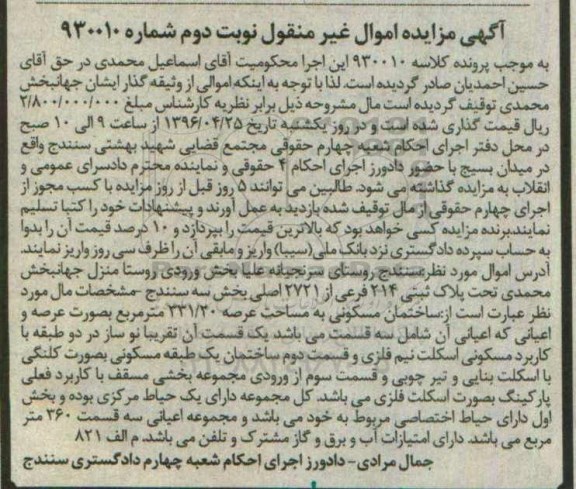 آگهی مزایده اموال غیر منقول نوبت دوم شماره ۹۳۰۰۱۰
به موجب پرونده کلاسه ۹۳۰۰۱۰ این اجرا محکومیت آقای اسماعیل محمدی در حق آقای
حسین احمدیان صادر گردیده است. لذا با توجه به اینکه اموالی از وثیقه گذار ایشان جهانبخش
محمدی توقیف گردیده است مال مشروحه ذیل برابر نظریه کارشناس مبلغ ۲/۸۰۰/۰۰۰/۰۰۰
ریال قیمت گذاری شده است و در روز یکشنبه تاریخ ۱۳۹۶/۰۴/۲۵ از ساعت ۹ الی ۱۰ صبح
در محل دفتر اجرای احکام شعبه چهارم حقوقی مجتمع قضایی شهید بهشتی سنندج واقع
در میدان بسیج با حضور دادورز اجرای احکام ۴ حقوقی و نماینده محترم دادسرای عمومی و
انقلاب به مزایده گذاشته می شود. طالبین می توانند ۵ روز قبل از روز مزایده با کسب مجوز از
اجرای چهارم حقوقی از مال توقیف شده بازدید به عمل آورند و پیشنهادات خود را کتبا تسلیم
نمایند.برنده مزایده کسی خواهد بود که بالاترین قیمت را بپردازد و ۱۰ درصد قیمت آن را بدوا
به حساب سپرده دادگستری نزد بانک ملی(سیبا) واریز و مابقی آن را ظرف سی روز واریز نمایند
آدرس اموال مورد نظر:سنندج روستای سرنجیانه علیا بخش ورودی روستا منزل جهانبخش
محمدی تحت پلاک ثبتی ۲۱۴ فرعی از ۲۷۲۱ اصلی بخش سه سنندج -مشخصات مال مورد
نظر عبارت است از:ساختمان مسکونی به مساحت عرصه ۳۳۱/۳۰ مترمربع بصورت عرصه و
اعیانی که اعیانی آن شامل سه قسمت می باشد یک قسمت آن تقریبا نو ساز در دو طبقه با
کاربرد مسکونی اسکلت نیم فلزی و قسمت دوم ساختمان یک طبقه مسکونی بصورت کلنگی
با اسکلت بنایی و تیر چوبی و قسمت سوم از ورودی مجموعه بخشی مسقف با کاربرد فعلی
پارکینگ بصورت اسکلت فلزی می باشد. کل مجموعه دارای یک حیاط مرکزی بوده و بخش
اول دارای حیاط اختصاصی مربوط به خود می باشد و مجموعه اعیانی سه قسمت ۳۶۰ متر
مربع می باشد. دارای امتیازات آب و برق و گاز مشترک و تلفن می باشد. م الف ۸۲۱
جمال مرادی- دادورز اجرای احکام شعبه چهارم دادگستری سنندج